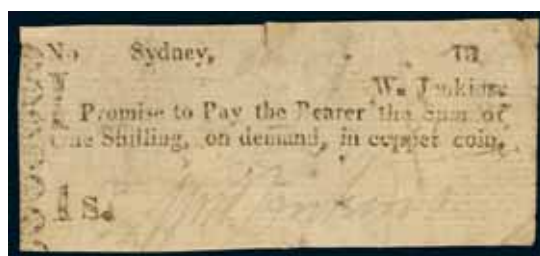 No Sydney, 18
Wm. Jenkins,
I Promise to Pay the Bearer the Sum of
One Shilling, on demand, in copper coin.
1 S.
Wm Jenkins